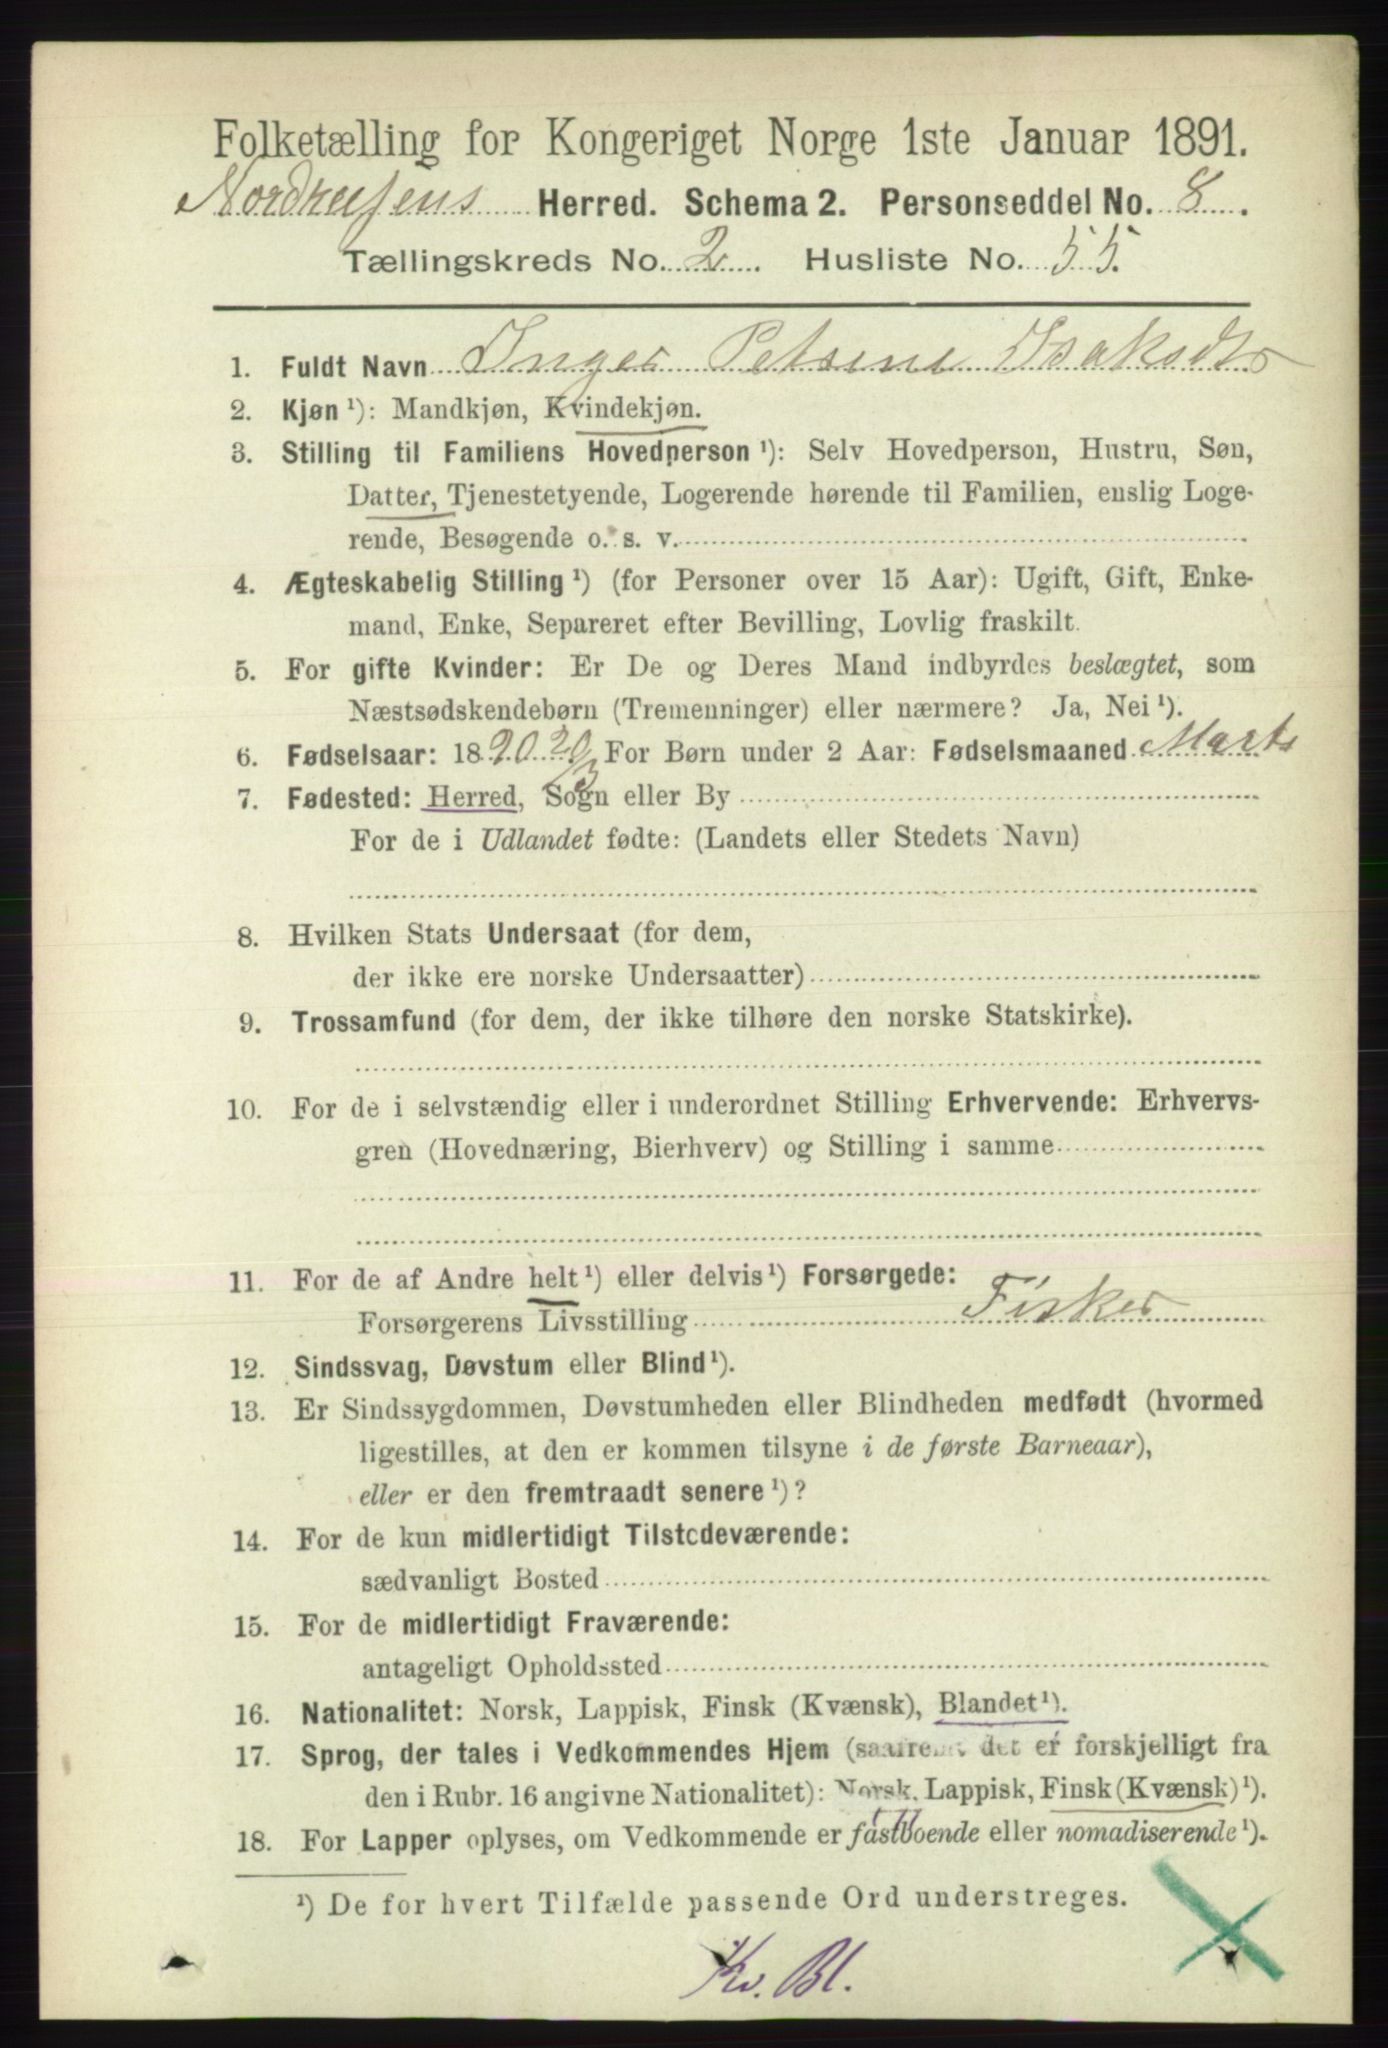 Folketælling for Kongeriget Norge 1ste Januar 1891.
Nordreisens Herred. Schema 2. Personseddel No. 8.
Tællingskreds No. 2. Husliste No. 55.
1. Fuldt Navn Inger Petrine Isaksdtr
2. Kjøn ¹): Mandkjøn, Kvindekjøn.
3. Stilling til Familiens Hovedperson ¹): Selv Hovedperson, Hustru, Søn,
Datter, Tjenestetyende, Logerende hørende til Familien, enslig Loge-
rende, Besøgende o. s. v.
4. Ægteskabelig Stilling ¹) (for Personer over 15 Aar): Ugift, Gift, Enke-
mand, Enke, Separeret efter Bevilling, Lovlig fraskilt.
5. For gifte Kvinder: Er De og Deres Mand indbyrdes beslægtet, som
Næstsødskendebørn (Tremenninger) eller nærmere? Ja, Nei ¹).
6. Fødselsaar: 1890 20/3 For Børn under 2 Aar: Fødselsmaaned Marts
7. Fødested: Herred, Sogn eller By
For de i Udlandet fødte: (Landets eller Stedets Navn)
8. Hvilken Stats Undersaat (for dem,
der ikke ere norske Undersaatter)
9. Trossamfund (for dem, der ikke tilhøre den norske Statskirke).
10. For de i selvstændig eller i underordnet Stilling Erhvervende: Erhvervs-
gren (Hovednæring, Bierhverv) og Stilling i samme
11. For de af Andre helt ¹) eller delvis ¹) Forsørgede:
Forsørgerens Livsstilling Fisker
12. Sindssvag, Døvstum eller Blind ¹).
13. Er Sindssygdommen, Døvstumheden eller Blindheden medfødt (hvormed
ligestilles, at den er kommen tilsyne i de første Barneaar),
eller er den fremtraadt senere ¹)?
14. For de kun midlertidigt Tilstedeværende:
sædvanligt Bosted
15. For de midlertidigt Fraværende:
antageligt Opholdssted
16. Nationalitet: Norsk, Lappisk, Finsk (Kvænsk), Blandet ¹).
17. Sprog, der tales i Vedkommendes Hjem (saafremt det er forskjelligt fra
den i Rubr. 16 angivne Nationalitet): Norsk, Lappisk, Finsk (Kvænsk) ¹).
18. For Lapper oplyses, om Vedkommende er fastboende eller nomadiserende ¹).
¹) De for hvert Tilfælde passende Ord understreges.
Kv. Bl.